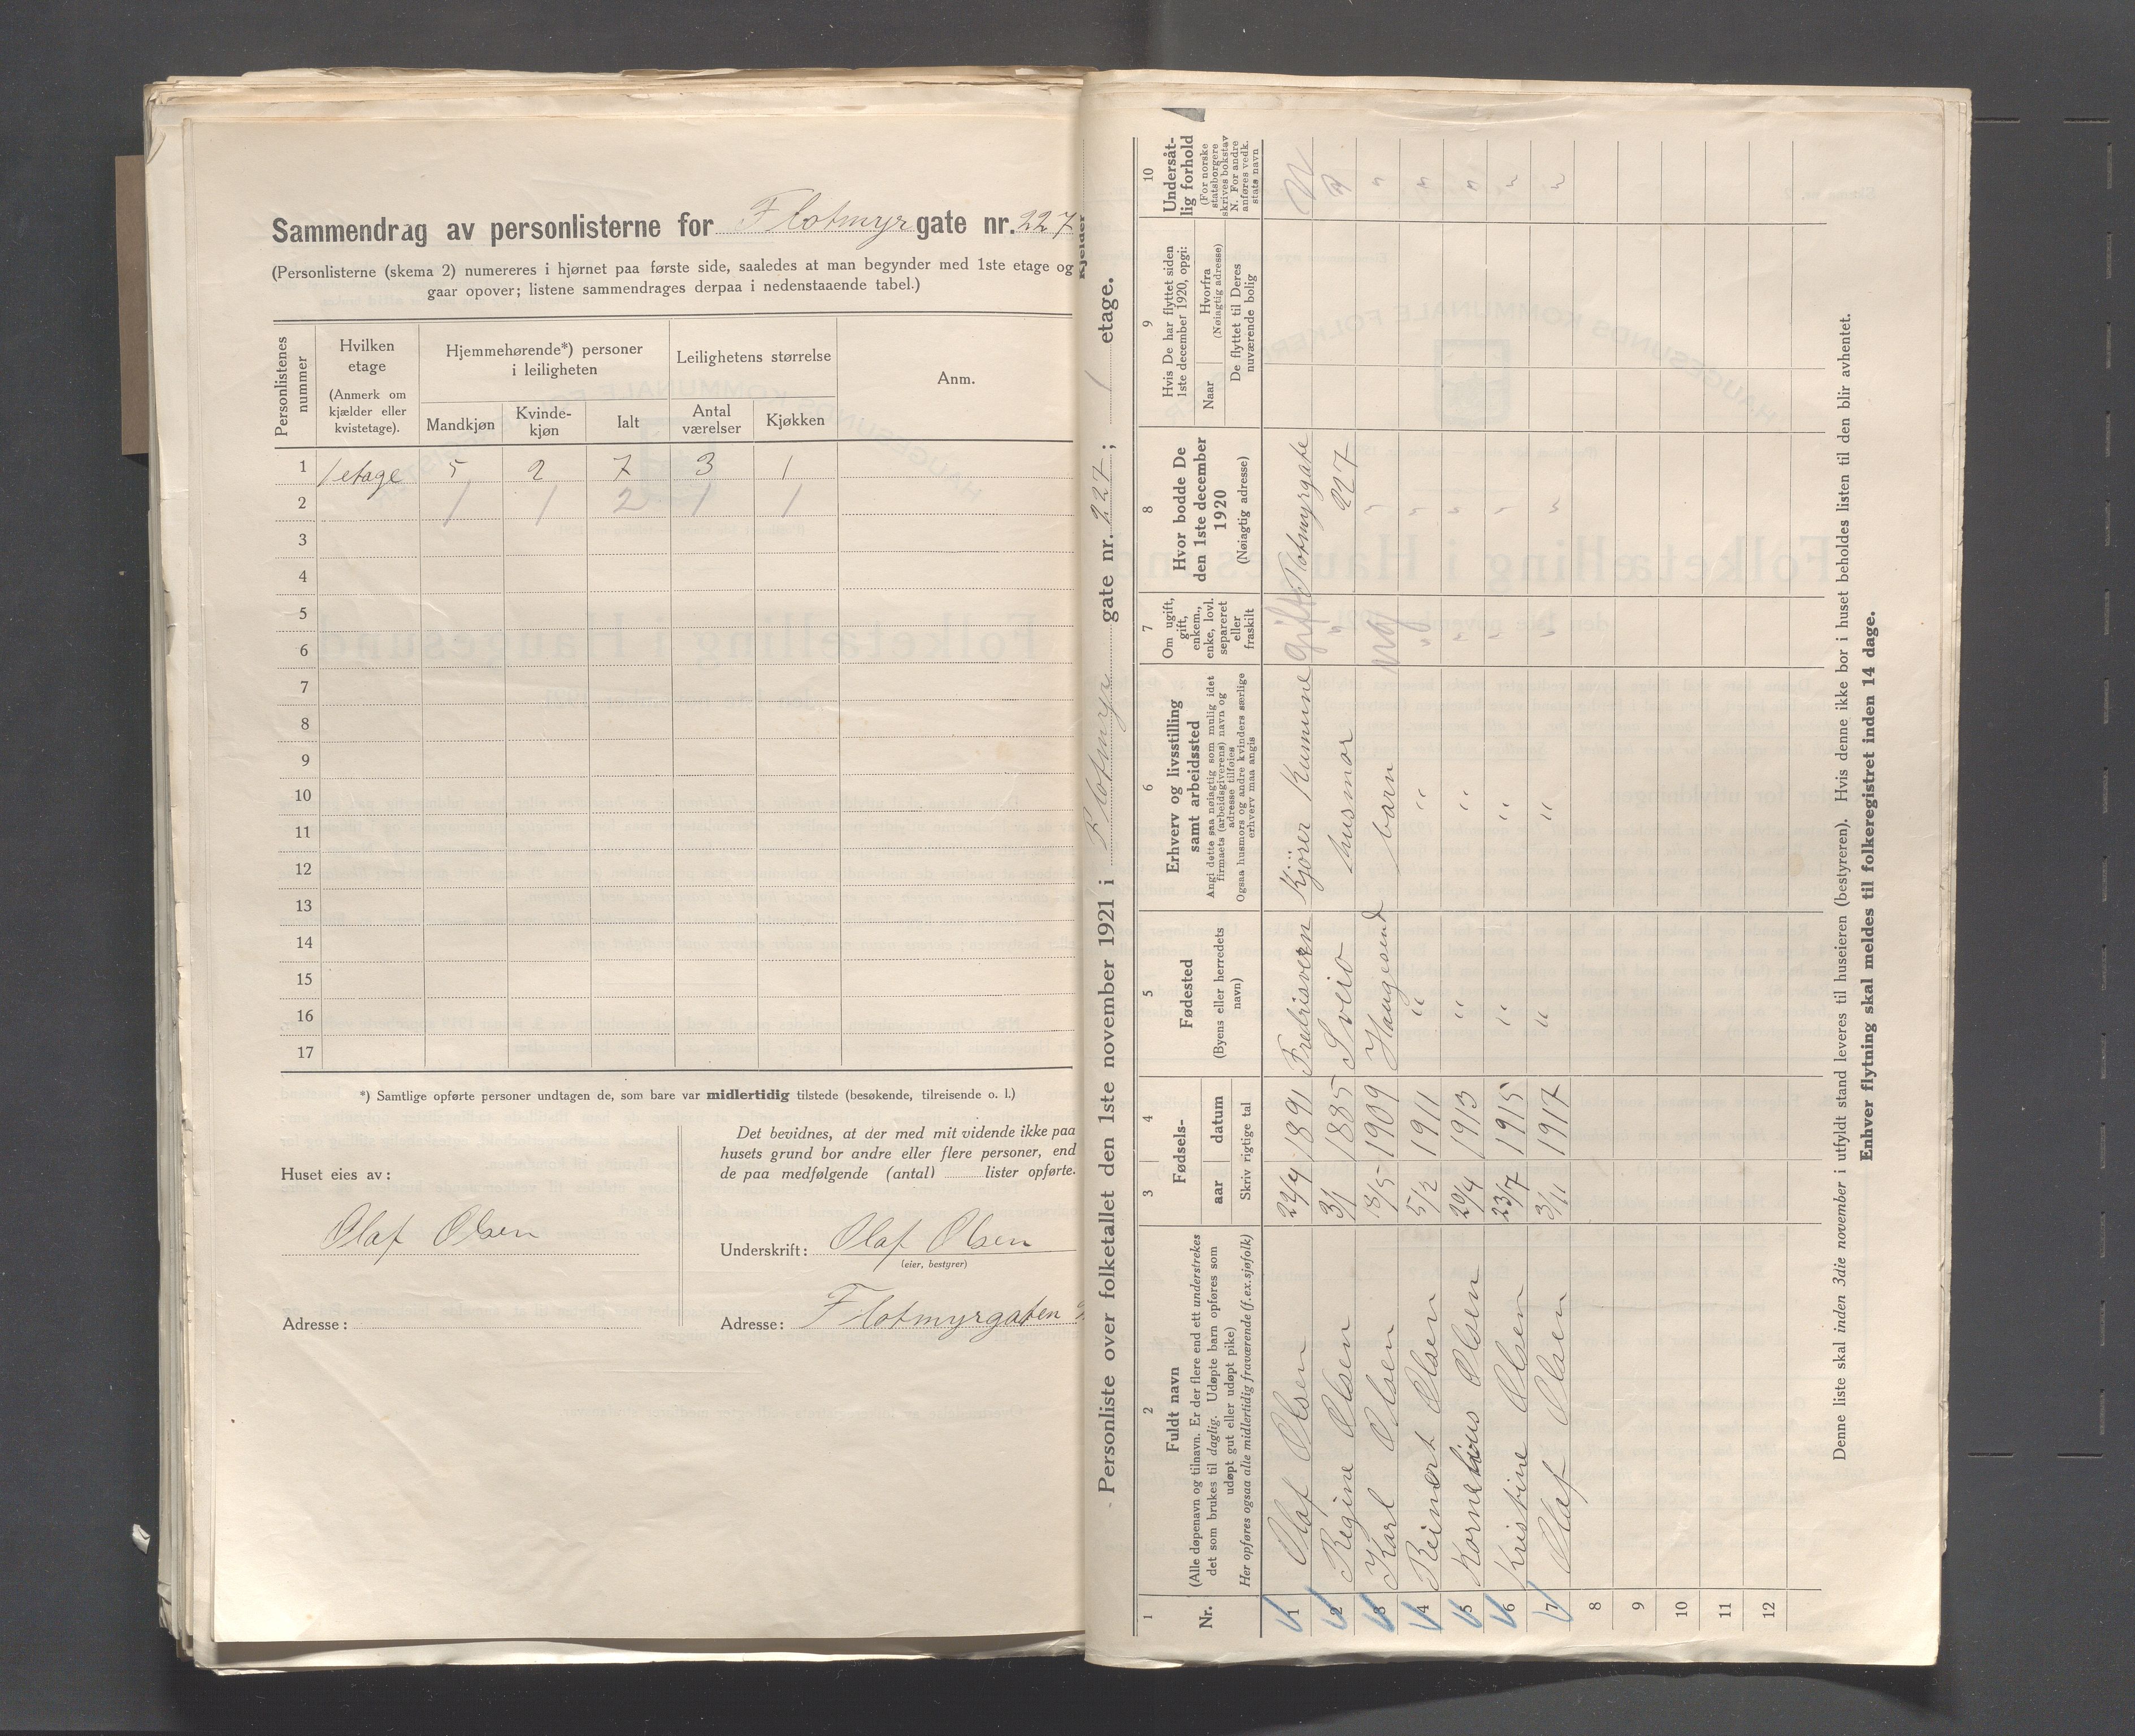 Sammendrag av personlisterne for Flotmyr gate nr. 227
(Personlisterne (skema 2) numereres i hjørnet paa første side, saaledes at man begynder med 1ste etage og
gaar opover; listene sammendrages derpaa i nedenstaaende tabel.)
Personlistenes nummer
Hvilken etage
(Anmerk om kjælder eller kvistetage).
Hjemmehørende*) personer i leiligheten
Mandkjøn
Kvinde-kjøn
Ialt
Leilighetens størrelse
Antal værelser
Kjøkken
Anm.
1 1 etage 5 2 7 3 1
2 1 1 2 1 1
3
4
5
6
7
8
9
10
11
12
13
14
15
16
17
*) Samtlige opførte personer undtagen de, som bare var midlertidig tilstede (besøkende, tilreisende o. l.)
Huset eies av:
Olaf Olsen
Adresse:
Det bevidnes, at der med mit vidende ikke paa
husets grund bor andre eller flere personer, end
de paa medfølgende (antal) lister opførte.
Underskrift: Olaf Olsen
(eier, bestyrer)
Adresse: Flotmyrgaten
Kjelder
Personliste over folketallet den 1ste november 1921 i Flotmyr gate nr. 227; 1 etage.
1
Nr.
2
Fuldt navn
(Alle døpenavn og tilnavn. Er der flere end ett understrekes
det som brukes til daglig. Udøpte barn opføres som
udøpt gut eller udøpt pike)
Her opføres ogsaa alle midlertidig fraværende (f.ex. sjøfolk)
3 4
Fødsels-
aar datum
Skriv rigtige tal
5
Fødested
(Byens eller herredets navn)
6
Erhverv og livsstilling
samt arbeidssted
Angi dette saa nøiagtig som mulig idet
firmaets (arbeidsgiverens) navn og
adresse tilføies
Ogsaa husmors og andre kvinders særlige
erhverv maa angis
7
Om ugift, gift, enkem., enke, lovl. separeret eller fraskilt
8
Hvor bodde De
den 1ste december
1920
(Nøiagtig adresse)
9
Hvis De har flyttet siden
1ste december 1920, opgi:
Naar
Hvorfra
(Nøiagtig adresse)
De flyttet til Deres nuværende bolig
10
Undersåt-
lig forhold
(For norske statsborgere skrives bokstav N. For andre anføres vedk. stats navn
1 Olaf Olsen 24/4 1891 Fredrisvern Kjører Kumune gift Flotmyrgate 227 N
2 Regine Olsen 3/1 1885 Sveio husmor " "
3 Karl Olsen 18/5 1909 Haugesund barn ug " "
4 Reinert Olsen 5/2 1911 " " " " "
5 Kornelius Olsen 20/4 1913 " " " " "
6 Kristine Olsen 23/7 1915 " " " " "
7 Olaf Olsen 3/11 1917 " " " " "
8
9
10
11
12
Denne liste skal inden 3die november i utfyldt stand leveres til huseieren (bestyreren). Hvis denne ikke bor i huset beholdes listen til den blir avhentet.
Enhver flytning skal meldes til folkeregistret inden 14 dage.